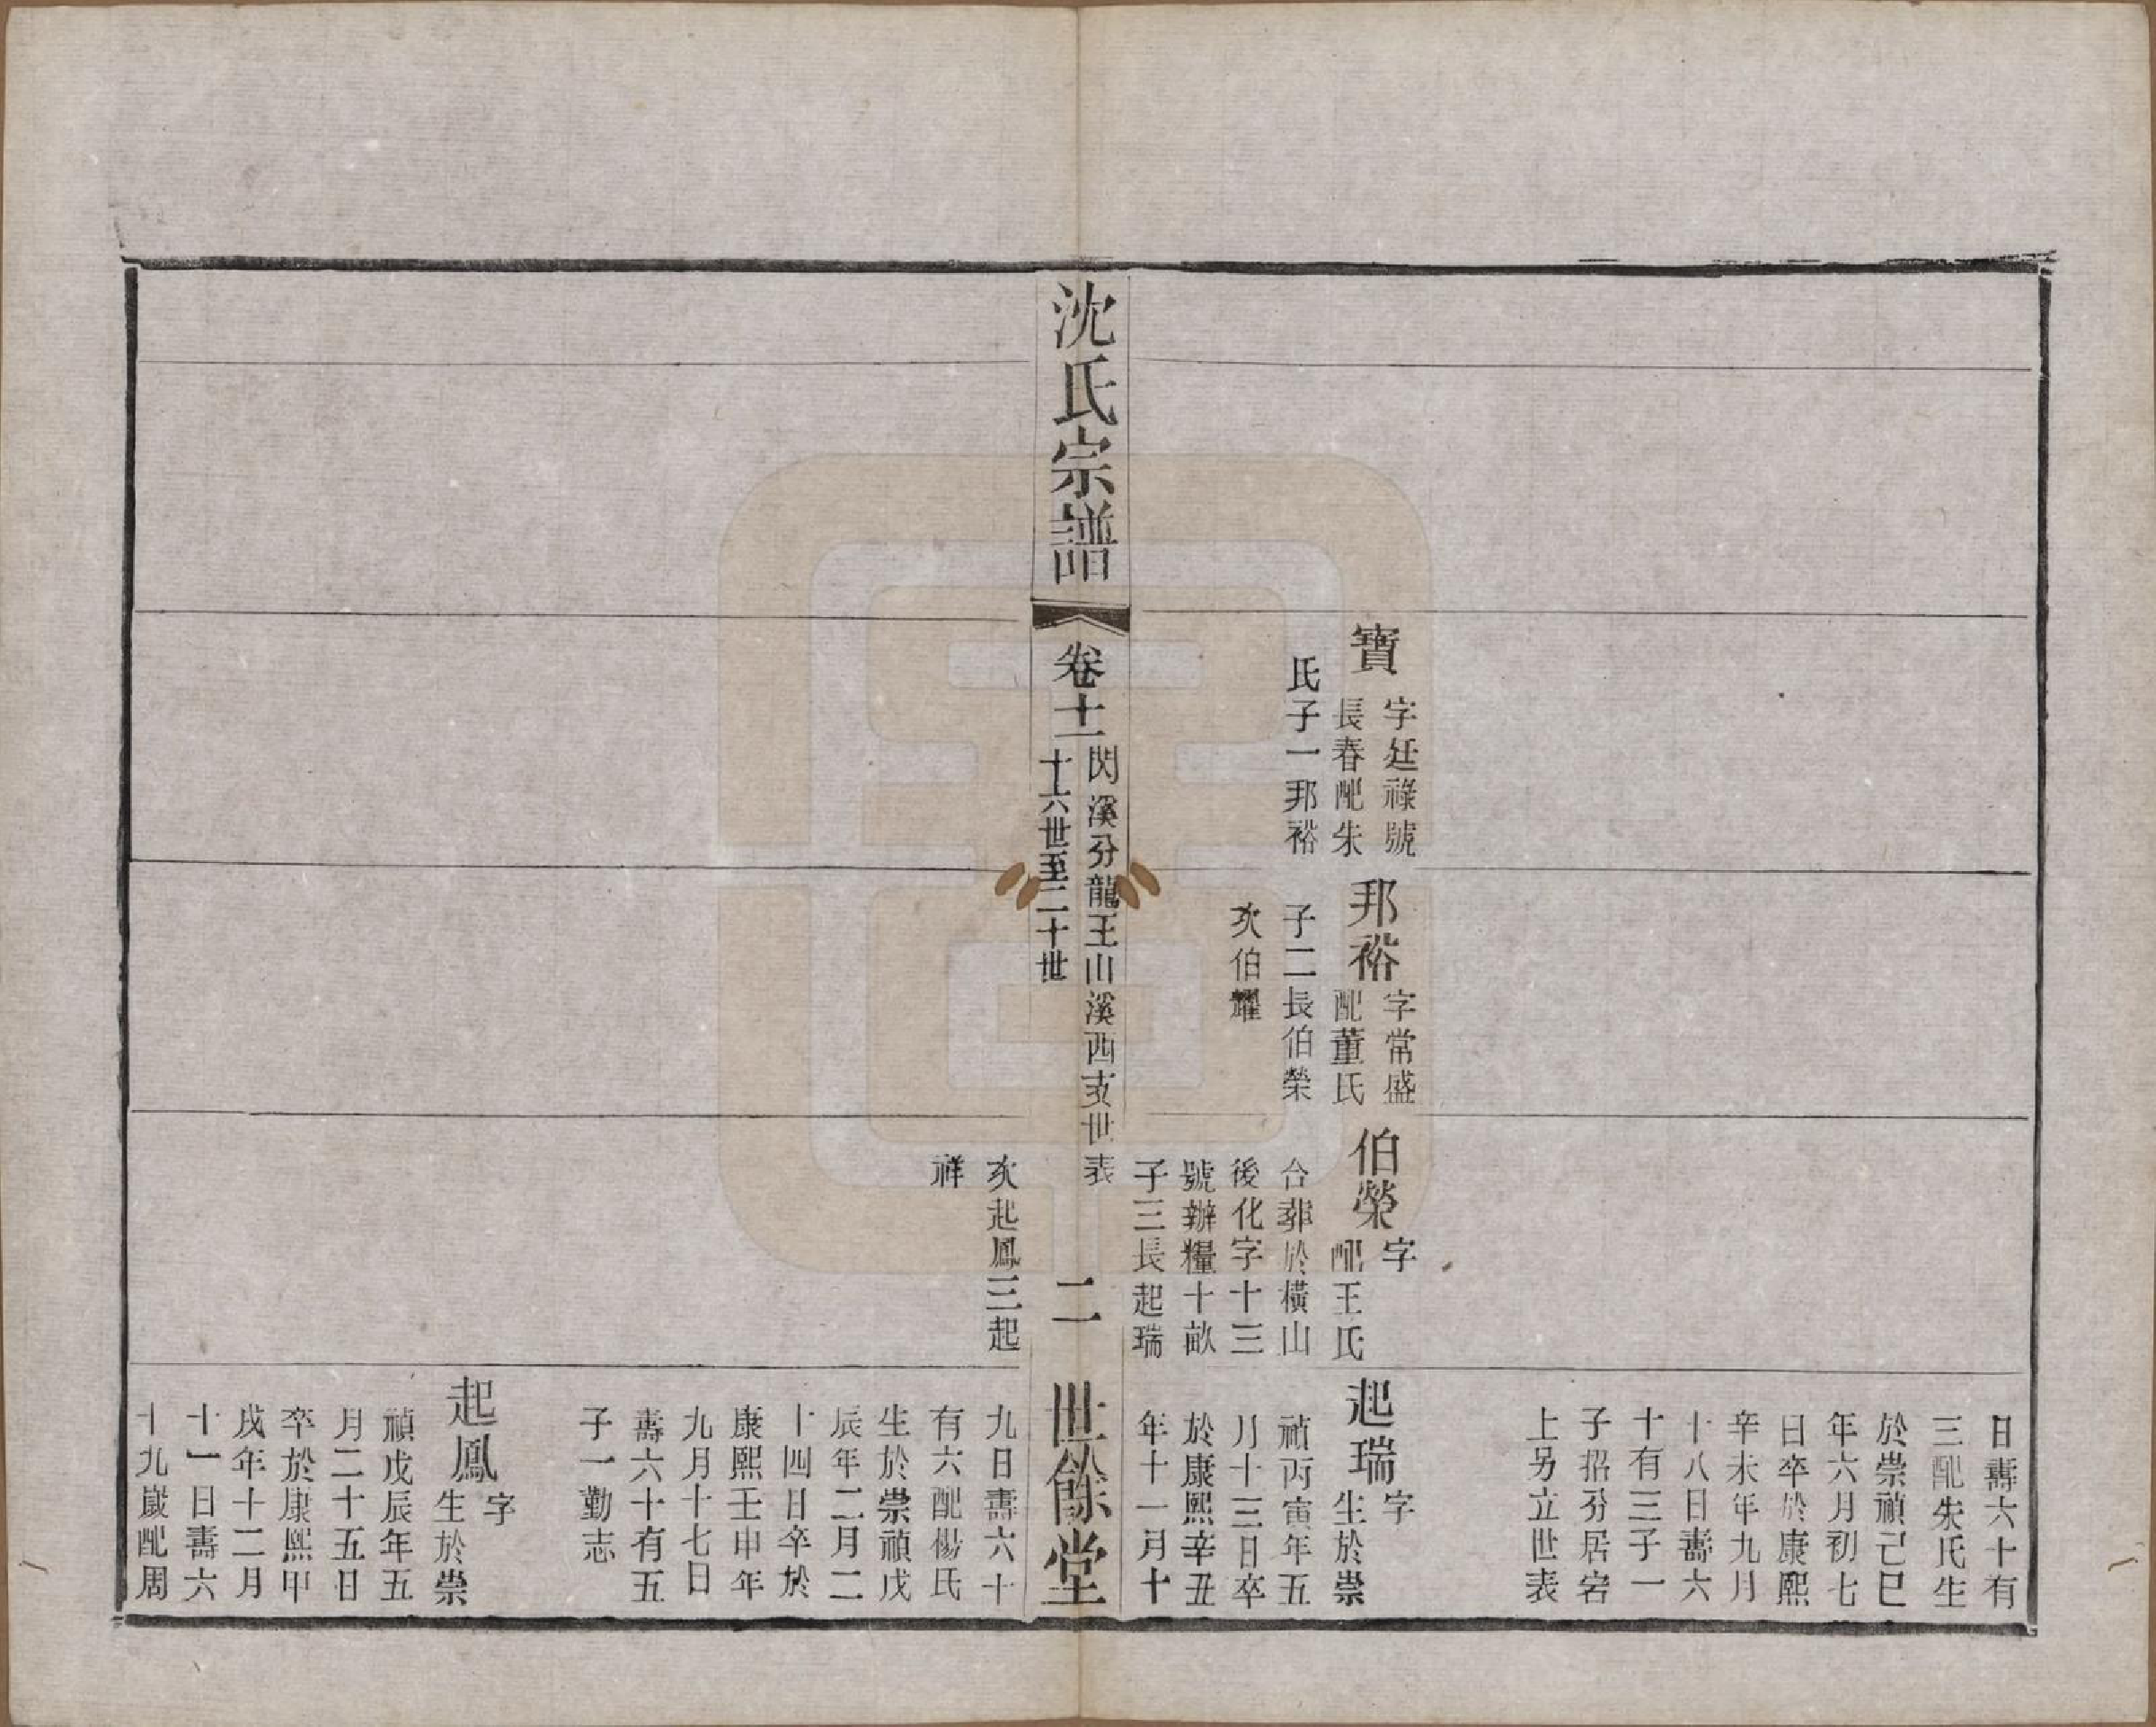 寶
字廷祿號
長春配朱
氏子一邦裕
邦裕
字常盛
配董氏
子二長伯榮
次伯耀
伯榮
字
配王氏
合葬於橫山
後化字十三
號辦糧十畝
子三長起瑞
日壽六十有
三配朱氏生
於崇禎己巳
年六月初七
日卒於康熙
辛未年九月
十八日壽六
十有三子一
子招分居宕
上另立世表
起瑞
字
生於崇
禎丙寅年五
月十三日卒
於康熙辛丑
年十一月十
沈氏宗譜
卷十一
閃溪分龍王山溪西支世表
十六世至二十世
二
世餘堂
次起鳳三起
祥
九日壽六十
有六配楊氏
生於崇禎戊
辰年二月二
十四日卒於
康熙壬申年
九月十七日
壽六十有五
子一勤志
起鳳
字
生於崇
禎戊辰年五
月二十五日
卒於康熙甲
戌年十二月
十一日壽六
十九歲配周